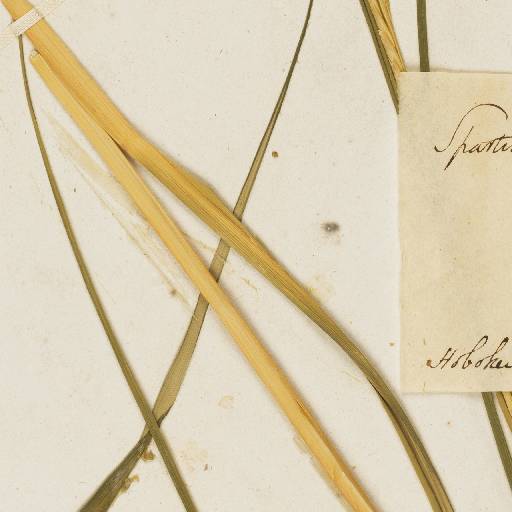 Sparti
Hoboke